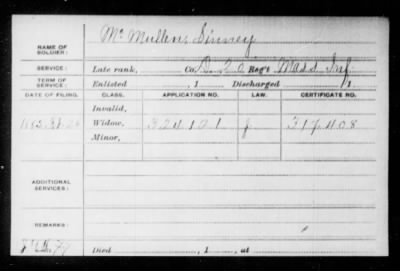 NAME OF SOLDIER: Mc Mullen, Sinney
SERVICE: Late rank, Co. D. 20 Reg't Mass Inf.
TERM OF SERVICE: Enlisted , 1 Discharged , 1
DATE OF FILING. CLASS. APPLICATION NO. LAW. CERTIFICATE NO.
Invalid,
Widow, 324101 317,408
Minor,
ADDITIONAL SERVICES:
REMARKS:
Died , 1 , at